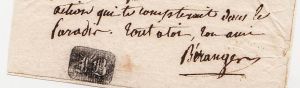 action qui te compterait dans le
Paradis. tout a toi, ton ami
Béranger